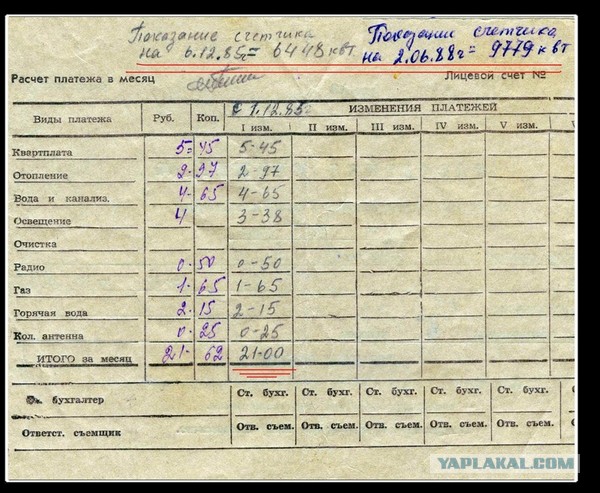 Показание счетчика
на 6.12.85г = 6448 квт
Показании счетчика,
на 2.06.88г = 9779 квт
Расчет платежа в месяц
Лицевой счет №
Виды платежа Руб. Коп. с 1.12.85г ИЗМЕНЕНИЯ ПЛАТЕЖЕЙ
I изм. II изм. III изм. IV изм. V изм. V
Квартплата 5- 45 5-45
Отопление 2- 97 2-97
Вода и канализ. 4- 65 4-65
Освещение 4 3-38
Очистка
Радио 0- 50 0-50
Газ 1- 65 1-65
Горячая вода 2- 15 2-15
Кол. антенна 0- 25 0-25
ИТОГО за месяц 21- 62 21-00
бухгалтер Ст. бухг. Ст. бухг. Ст. бухг. Ст. бухг. Ст. бухг. С
Ответст. съемщик Отв. съем. Отв. съем. Отв. съем. Отв. съем. Отв. съем. О
YAPLAKAL.COM